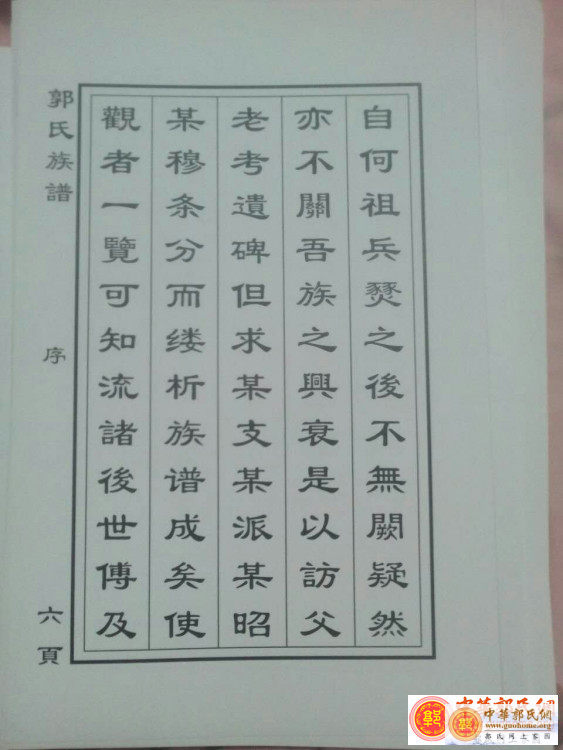 自何祖兵燹之後不無闕疑然
亦不關吾族之興衰是以訪父
老考遺碑但求某支某派某昭
某穆条分而缕析族谱成矣使
觀者一覽可知流諸後世傅及
郭氏族譜
序
六頁
中華郭氏網
www.guohome.org
郭氏网上家园